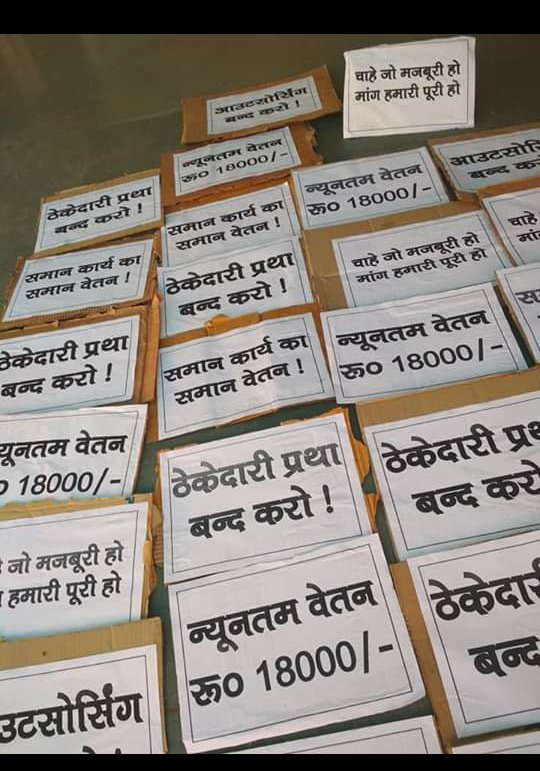 आउटसोर्सिंग
बन्द करो !
चाहे जो मजबूरी हो
मांग हमारी पूरी हो
न्यूनतम वेतन
रू० 18000/-
आउटसोर्सिं
बन्द कर
ठेकेदारी प्रथा
बन्द करो !
समान कार्य का
समान वेतन !
न्यूनतम वेतन
रू० 18000/-
चाहे
मांग
समान कार्य का
समान वेतन !
ठेकेदारी प्रथा
बन्द करो !
चाहे जो मजबूरी हो
मांग हमारी पूरी हो
स
ठेकेदारी प्रथा
बन्द करो !
समान कार्य का
समान वेतन !
न्यूनतम वेतन
रू० 18000/-
यूनतम वेतन
० 18000/-
ठेकेदारी प्रथा
बन्द करो !
ठेकेदारी प्रथ
बन्द करो
जो मजबूरी हो
हमारी पूरी हो
न्यूनतम वेतन
रू० 18000/-
ठेकेदार
बन्द
उटसोर्सिंग